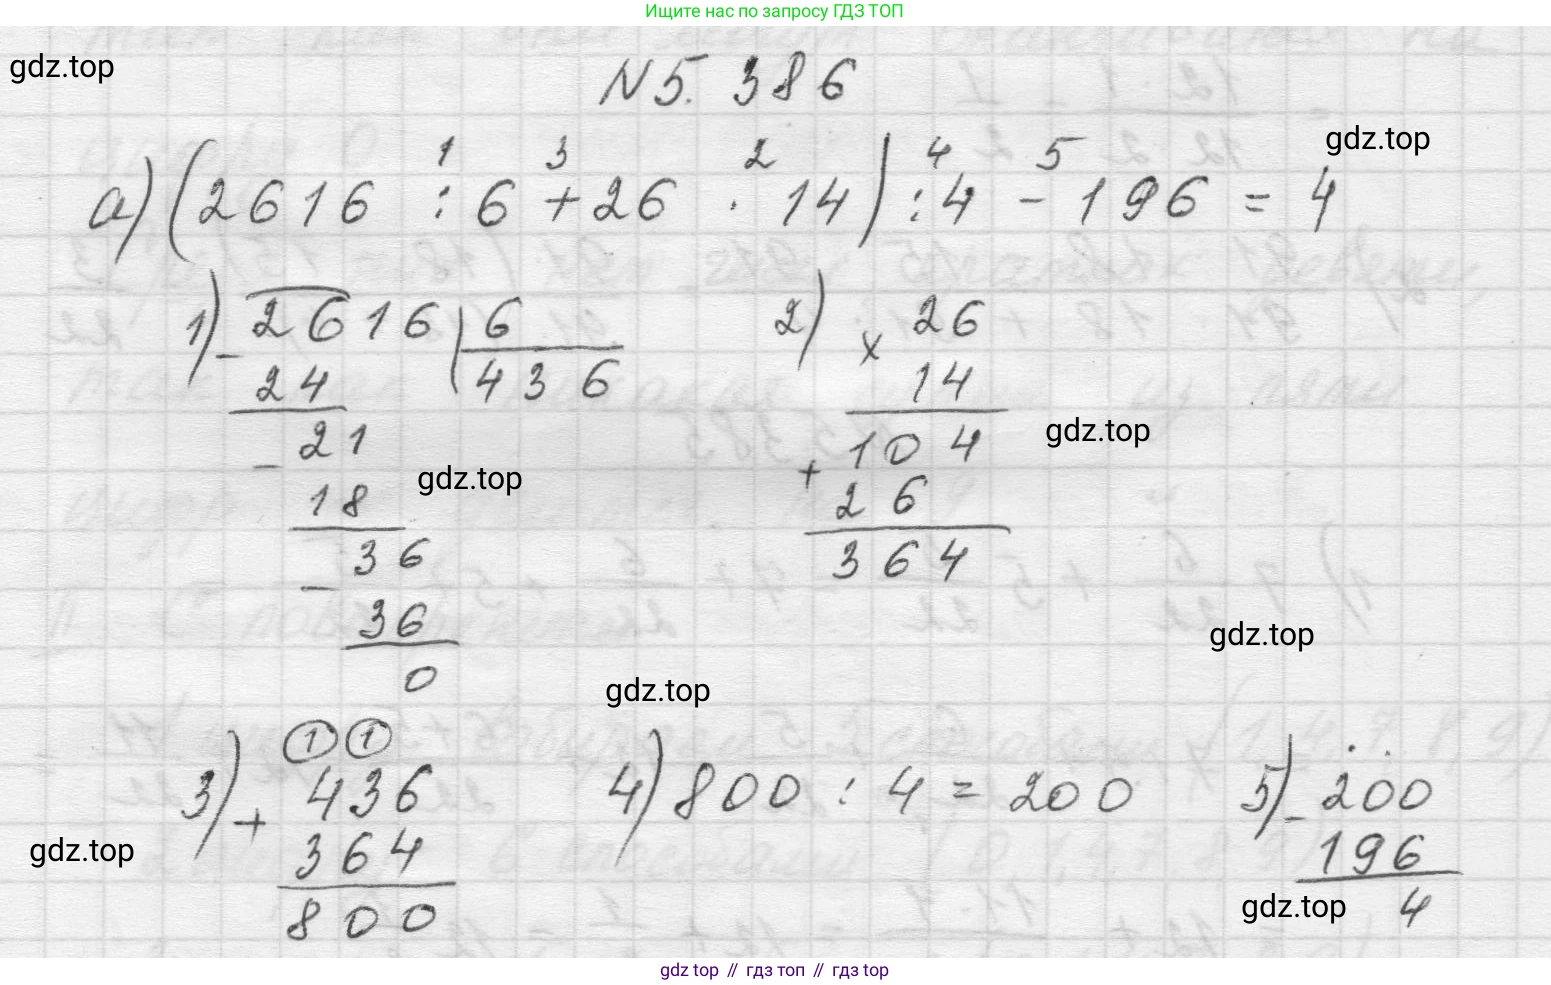 Ищите нас по запросу ГДЗ ТОП
gdz.top
N 5. 386
gdz.top
1 3 2 4 5
а) (2616 : 6 + 26 · 14) : 4 - 196 = 4
1) - 2616 6
24 436
- 21
18
- 36
36
0
2) × 26
14
+ 104
26
364
gdz.top
gdz.top
gdz.top
gdz.top
3) 1 1
+ 436
364
800
4) 800 : 4 = 200
5) - 200
196
4
gdz.top
gdz.top
gdz top // гдз топ // гдз top